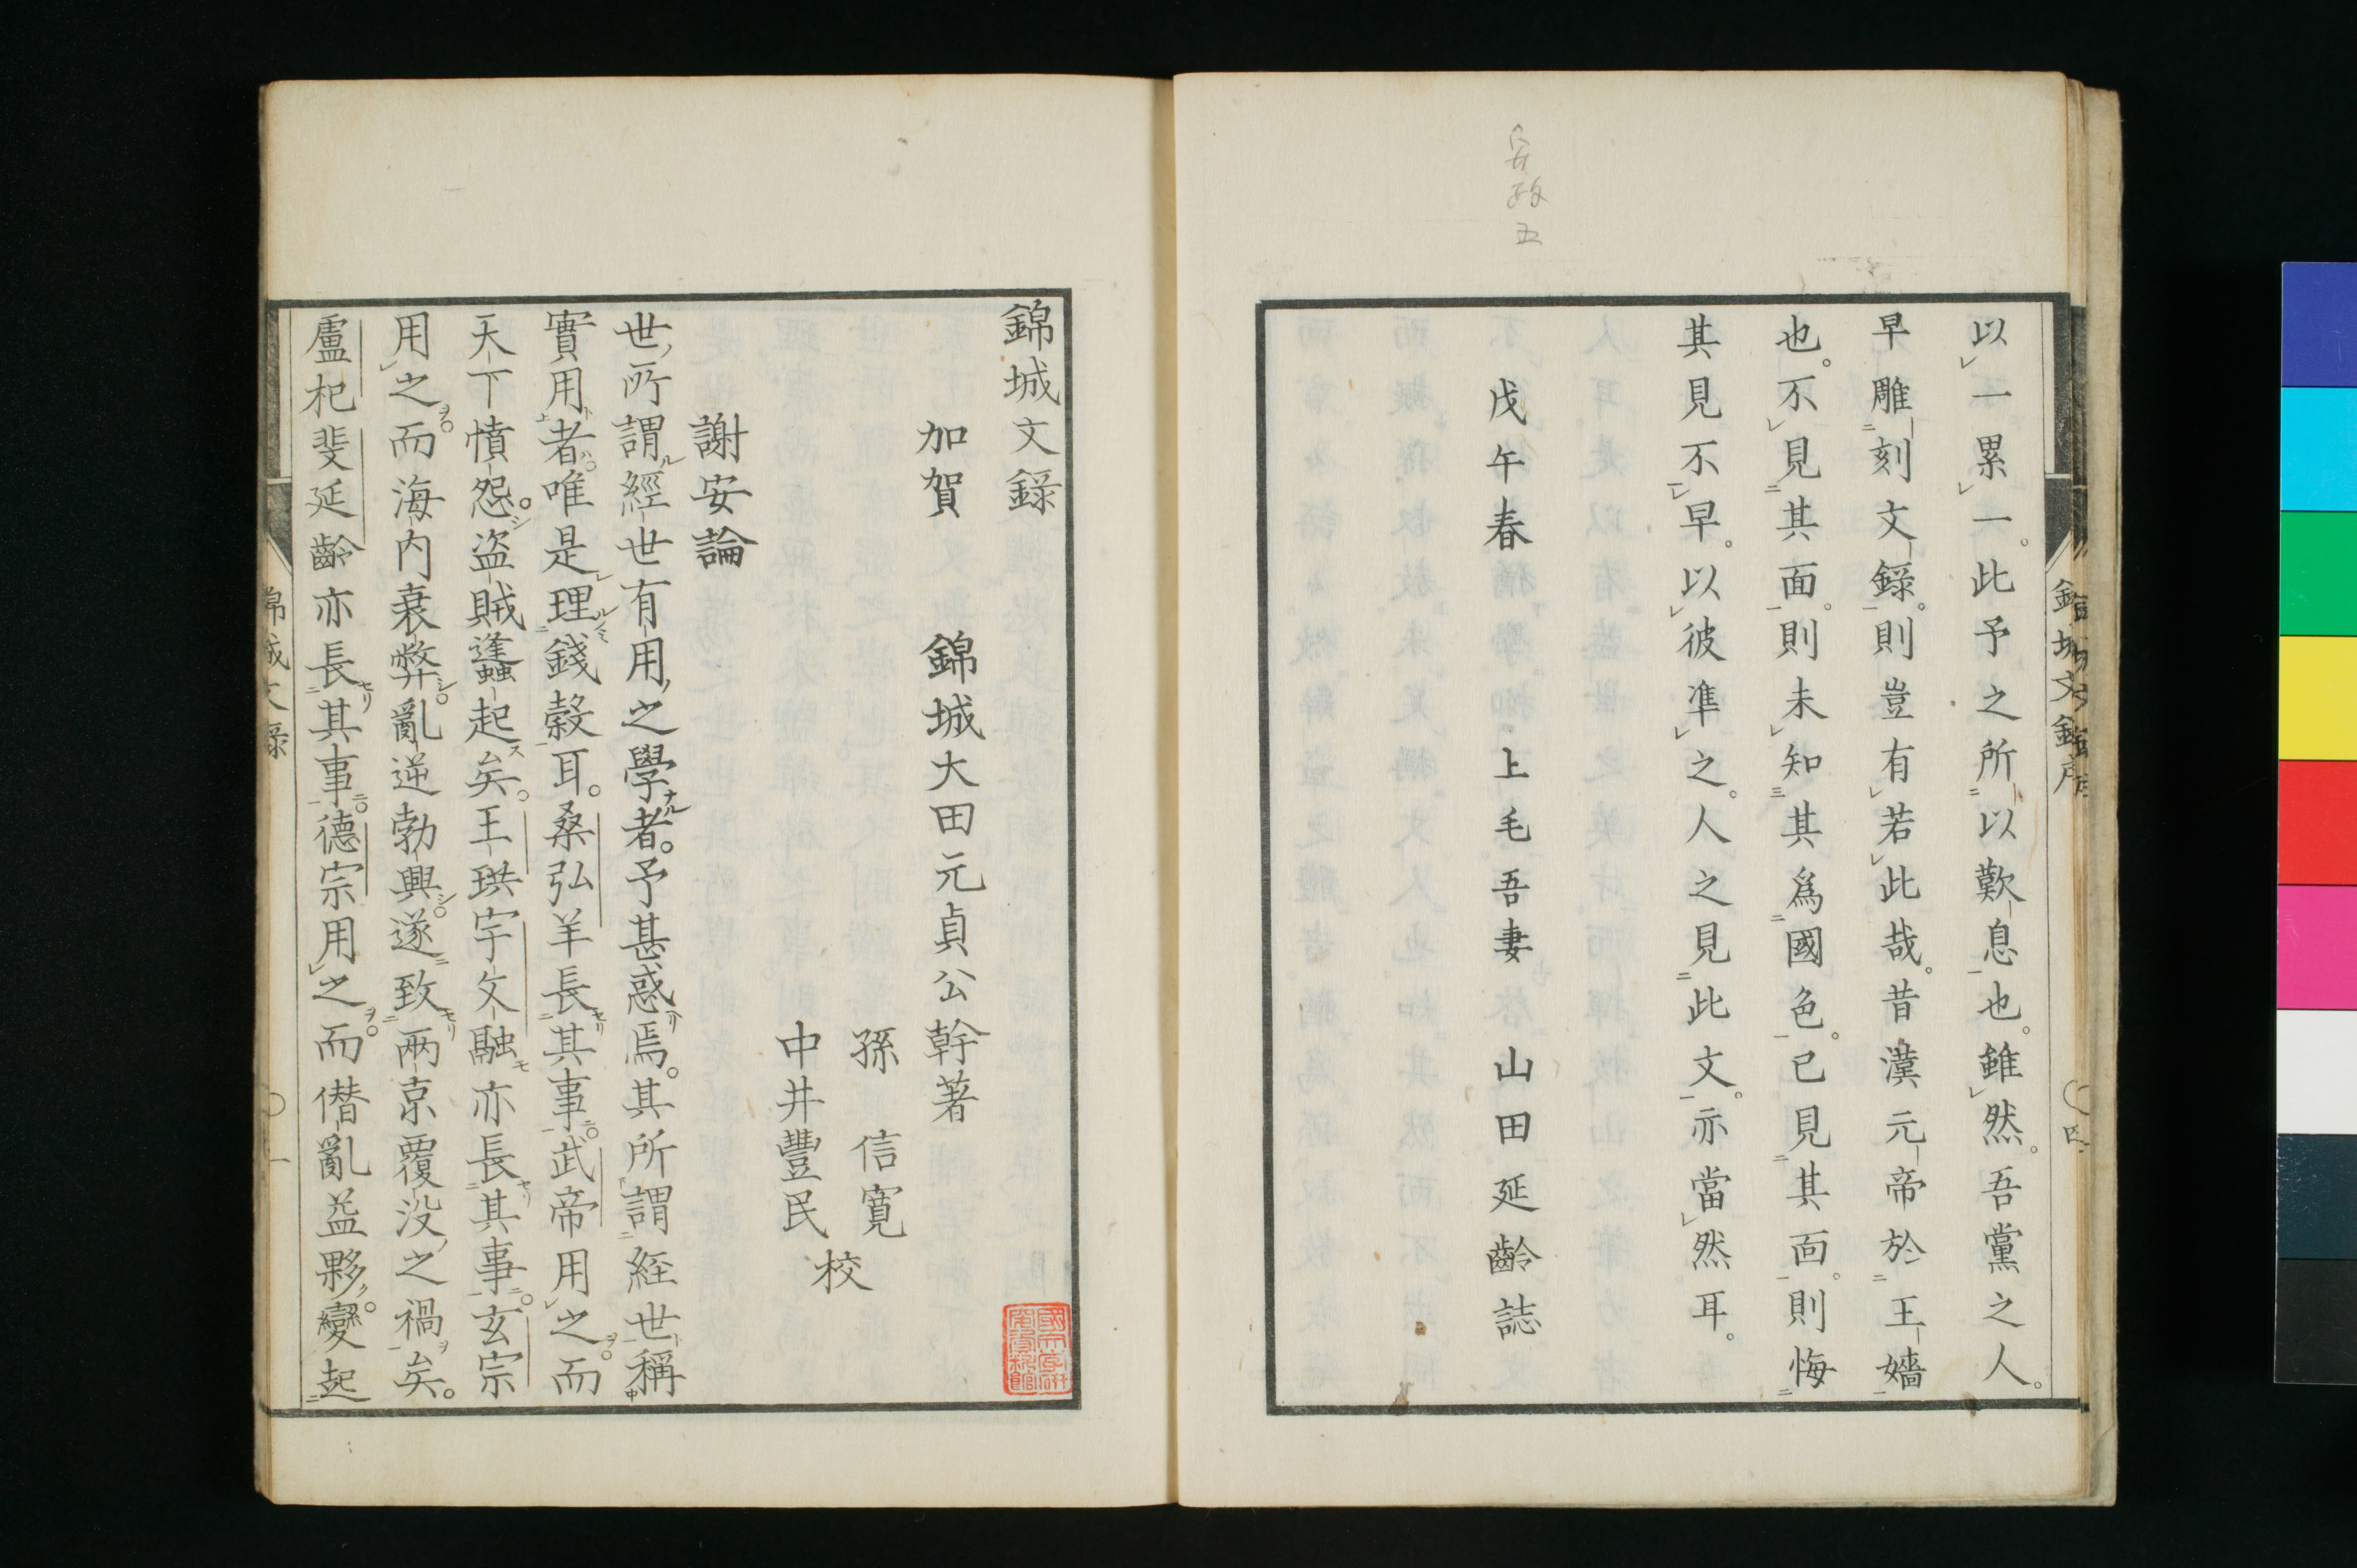 安政五
以一累一。此予之所以歎息也。雖然。吾黨之人。
早雕刻文錄。則豈有若此哉。昔漢元帝於王嬙
也。不見其面。則未知其爲國色。已見其面。則悔
其見不早。以彼準之。人之見此文。亦當然耳。
戊午春　上毛吾妻　山田延齡誌
錦城文錄
加賀　錦城大田元貞公幹著
孫　信寬
中井豐民
校
謝安論
世所謂經世有用之學者。予甚惑焉。其所謂経世稱
實用者。唯是理錢穀耳。桑弘羊長其事。武帝用之。而
天下憤怨。盜賊蠭起矣。王珙宇文融亦長其事。玄宗
用之。而海內衰弊。亂逆勃興。遂致兩京覆没之禍矣。
盧杞斐延齡亦長其事。德宗用之。而僭亂益夥。變起
錦城文錄